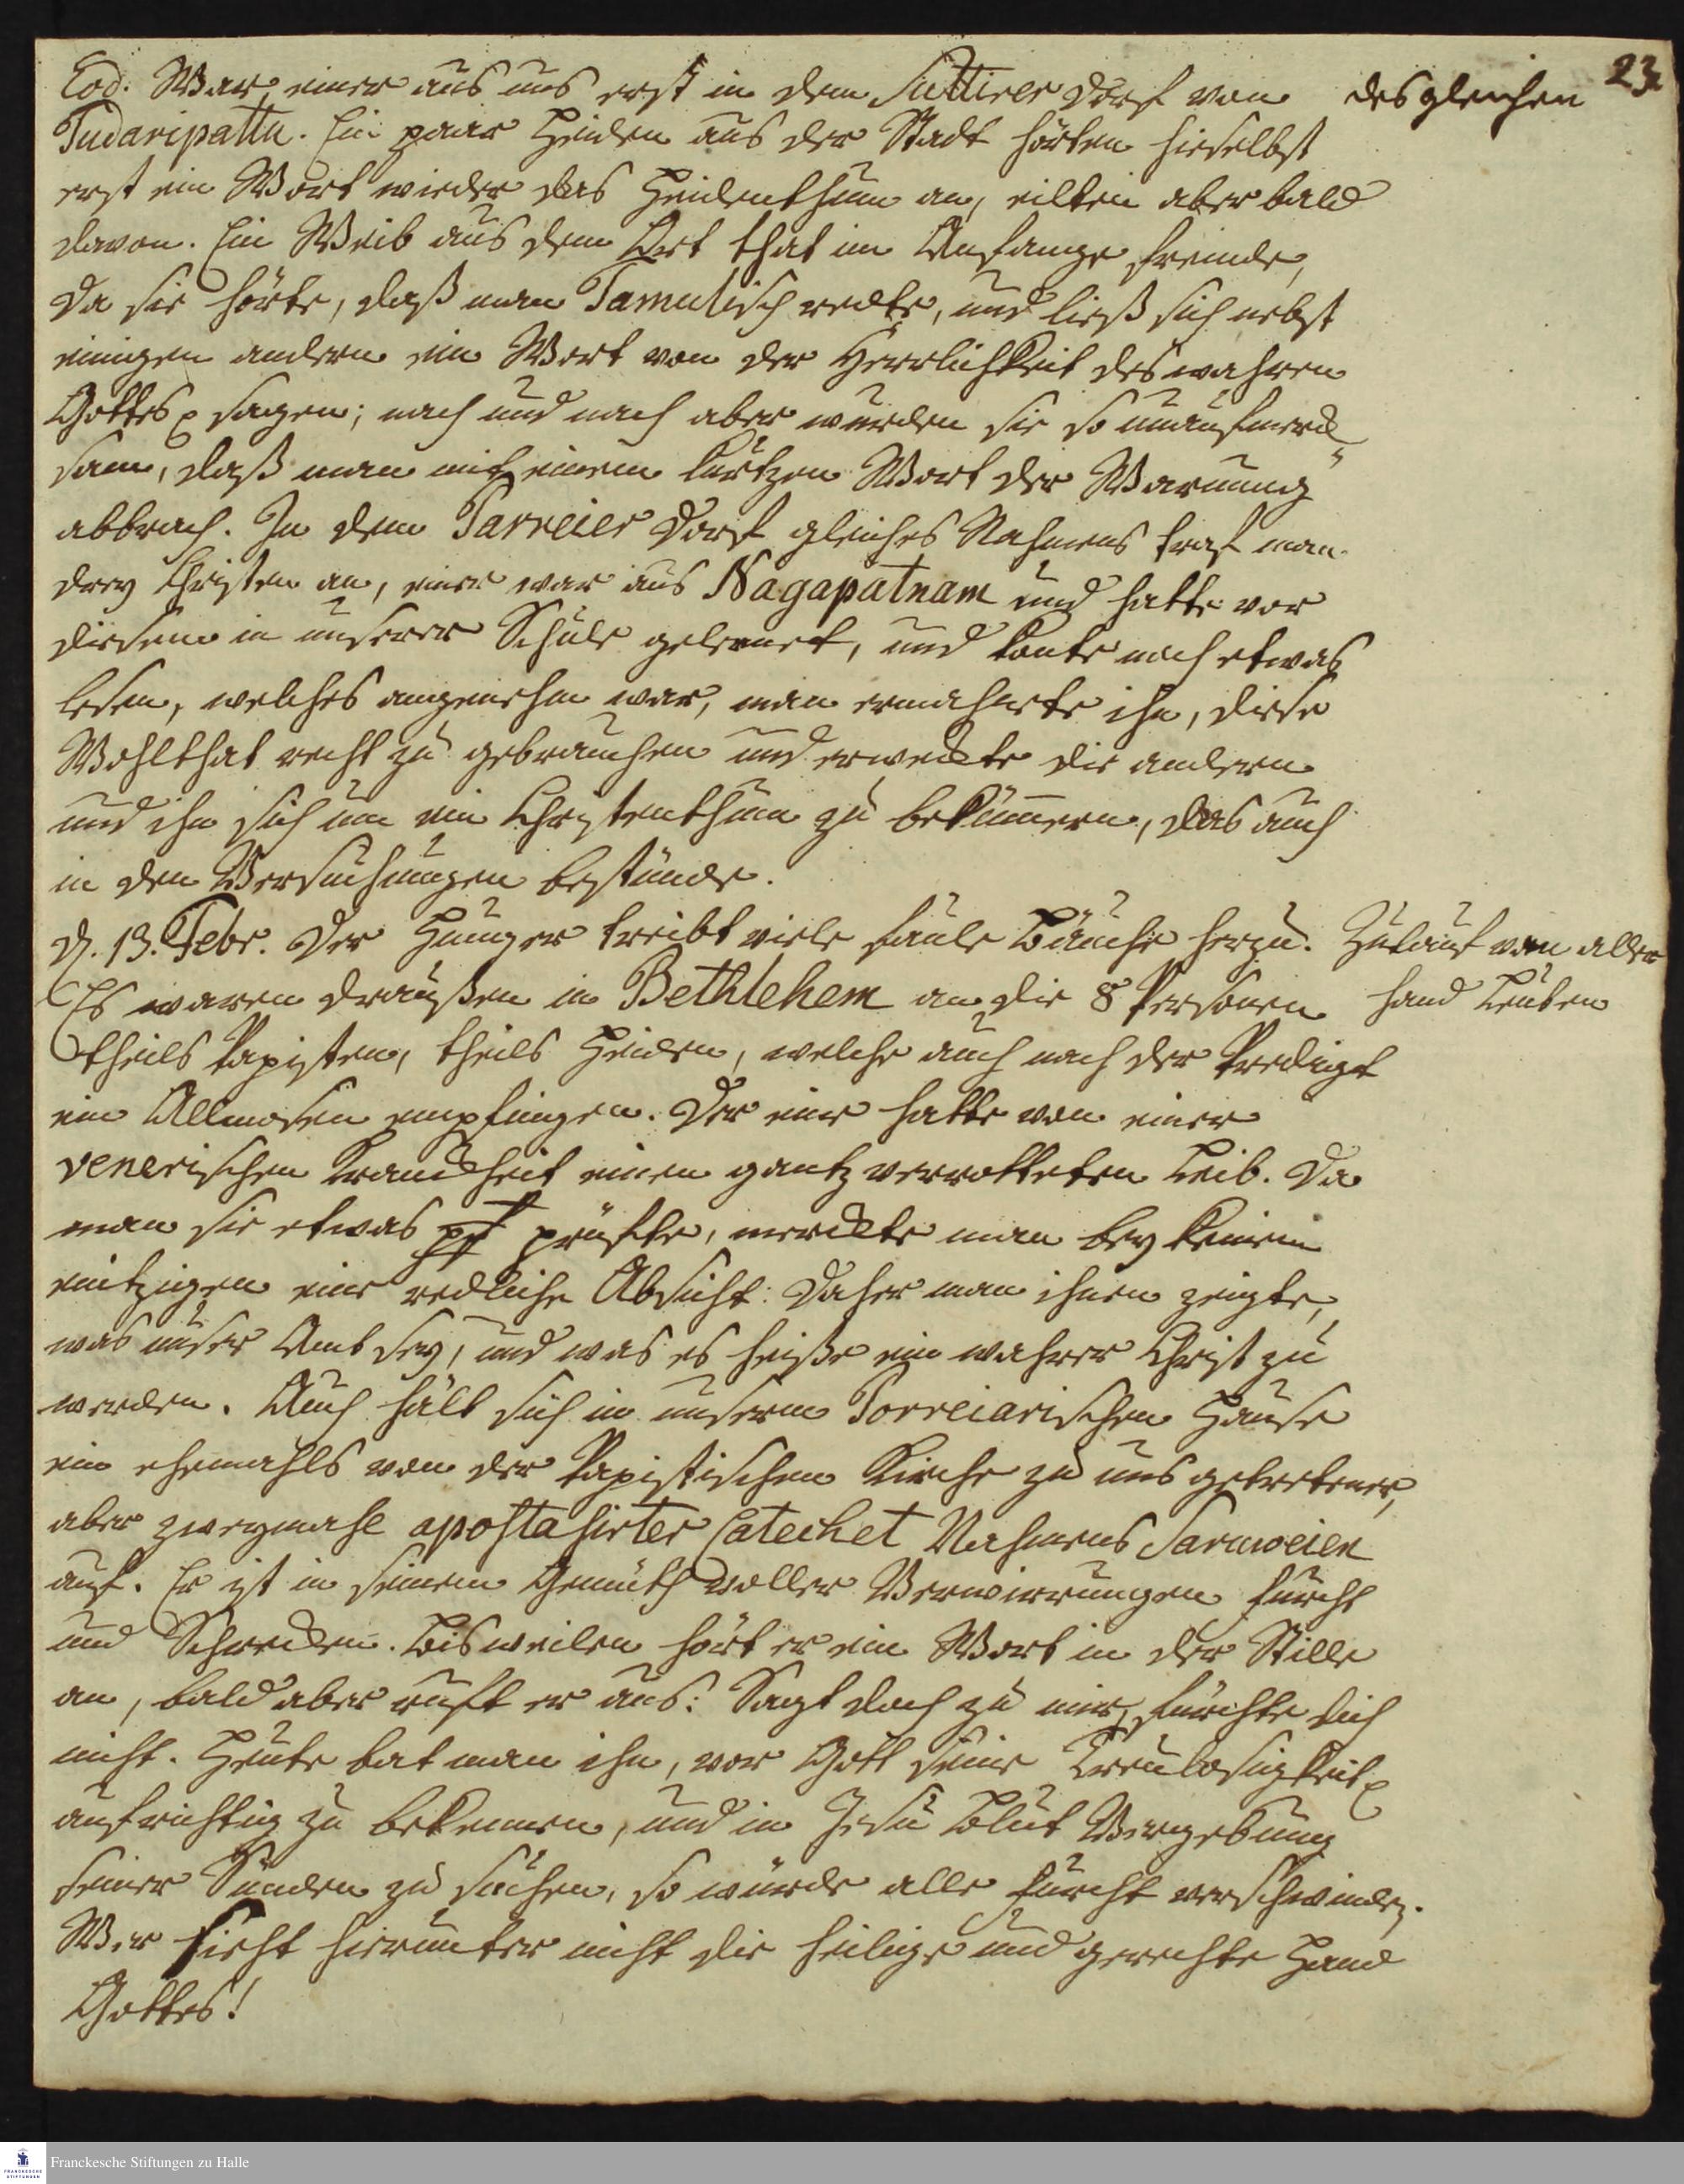 23
desgleichen
Eod. War einer aus uns erst in dem Suttirer Dorf von
Tudaripattu. Ein paar Heiden aus der Stadt hörten hieselbst
erst ein Wort wieder das Heidenthum an, eilten aber bald
davon. Ein Weib aus dem Ort that im Anfange freinde,
da sie hörte, daß man Tamulisch redte, und ließ sich nebst
einigen andern ein Wort von der Herrlichkeit des wahren
Gottes p sagen; nach und nach aber wurden sie so unaufmerck
sam, daß man mit einem kurtzen Wort der Warnung
abbrach. In dem Parreier Dorf gleiches Nahmens traf man
drey Christen an, einer war aus Nagapatnam und hatte vor
diesem in unserer Schule gelernet, und konte noch etwas
lesen, welches angenehm war, man ermahnte ihn, diese
Wohlthat recht zu gebrauchen und erweckte die andern
und ihn sich um ein Christenthum zu bekümmern, das auch
in den Versuchungen bestünde.
D. 13. Febr. Der Hunger treibt viele faule Bäuche herzu.
Zulauf von aller
hand Leuten
Es waren draußen in Bethlehem an die 8 Personen
theils Papisten, theils Heiden, welche auch nach der Predigt
ein Allmosen empfingen. Der eine hatte von einer
venerischen Kranckheit einen gantz verrotteten Leib. Da
man sie etwas prüfte, merckte man bey keinem
eintzigen eine redliche Absicht: Daher man ihnen zeigte,
was unser Amt sey, und was es heiße ein wahrer Christ zu
werden. Auch hält sich in unserm Porreiarischen Hause
ein ehemahls von der Papistischen Kirche zu uns getretener,
aber zweymahl apostasirter Catechet Nahmens Saruweien
auf. Er ist in seinem Gemüth voller Verwirrungen Furcht
und Schrecken. Bisweilen hört er ein Wort in der Stille
an, bald aber ruft er aus: Sagt doch zu mir, fürchte dich
nicht. Heute bat man ihn, vor Gott seine Treulosigkeit p
aufrichtig zu bekennen, und in Jesu Blut Vergebung
seiner Sünden zu suchen, so würde alle Furcht verschwinden.
Wer sieht hierunter nicht die heilige und gerechte Hand
Gottes!
Franckesche Stiftungen zu Halle
FRANCKESCHE
STIFTUNGEN